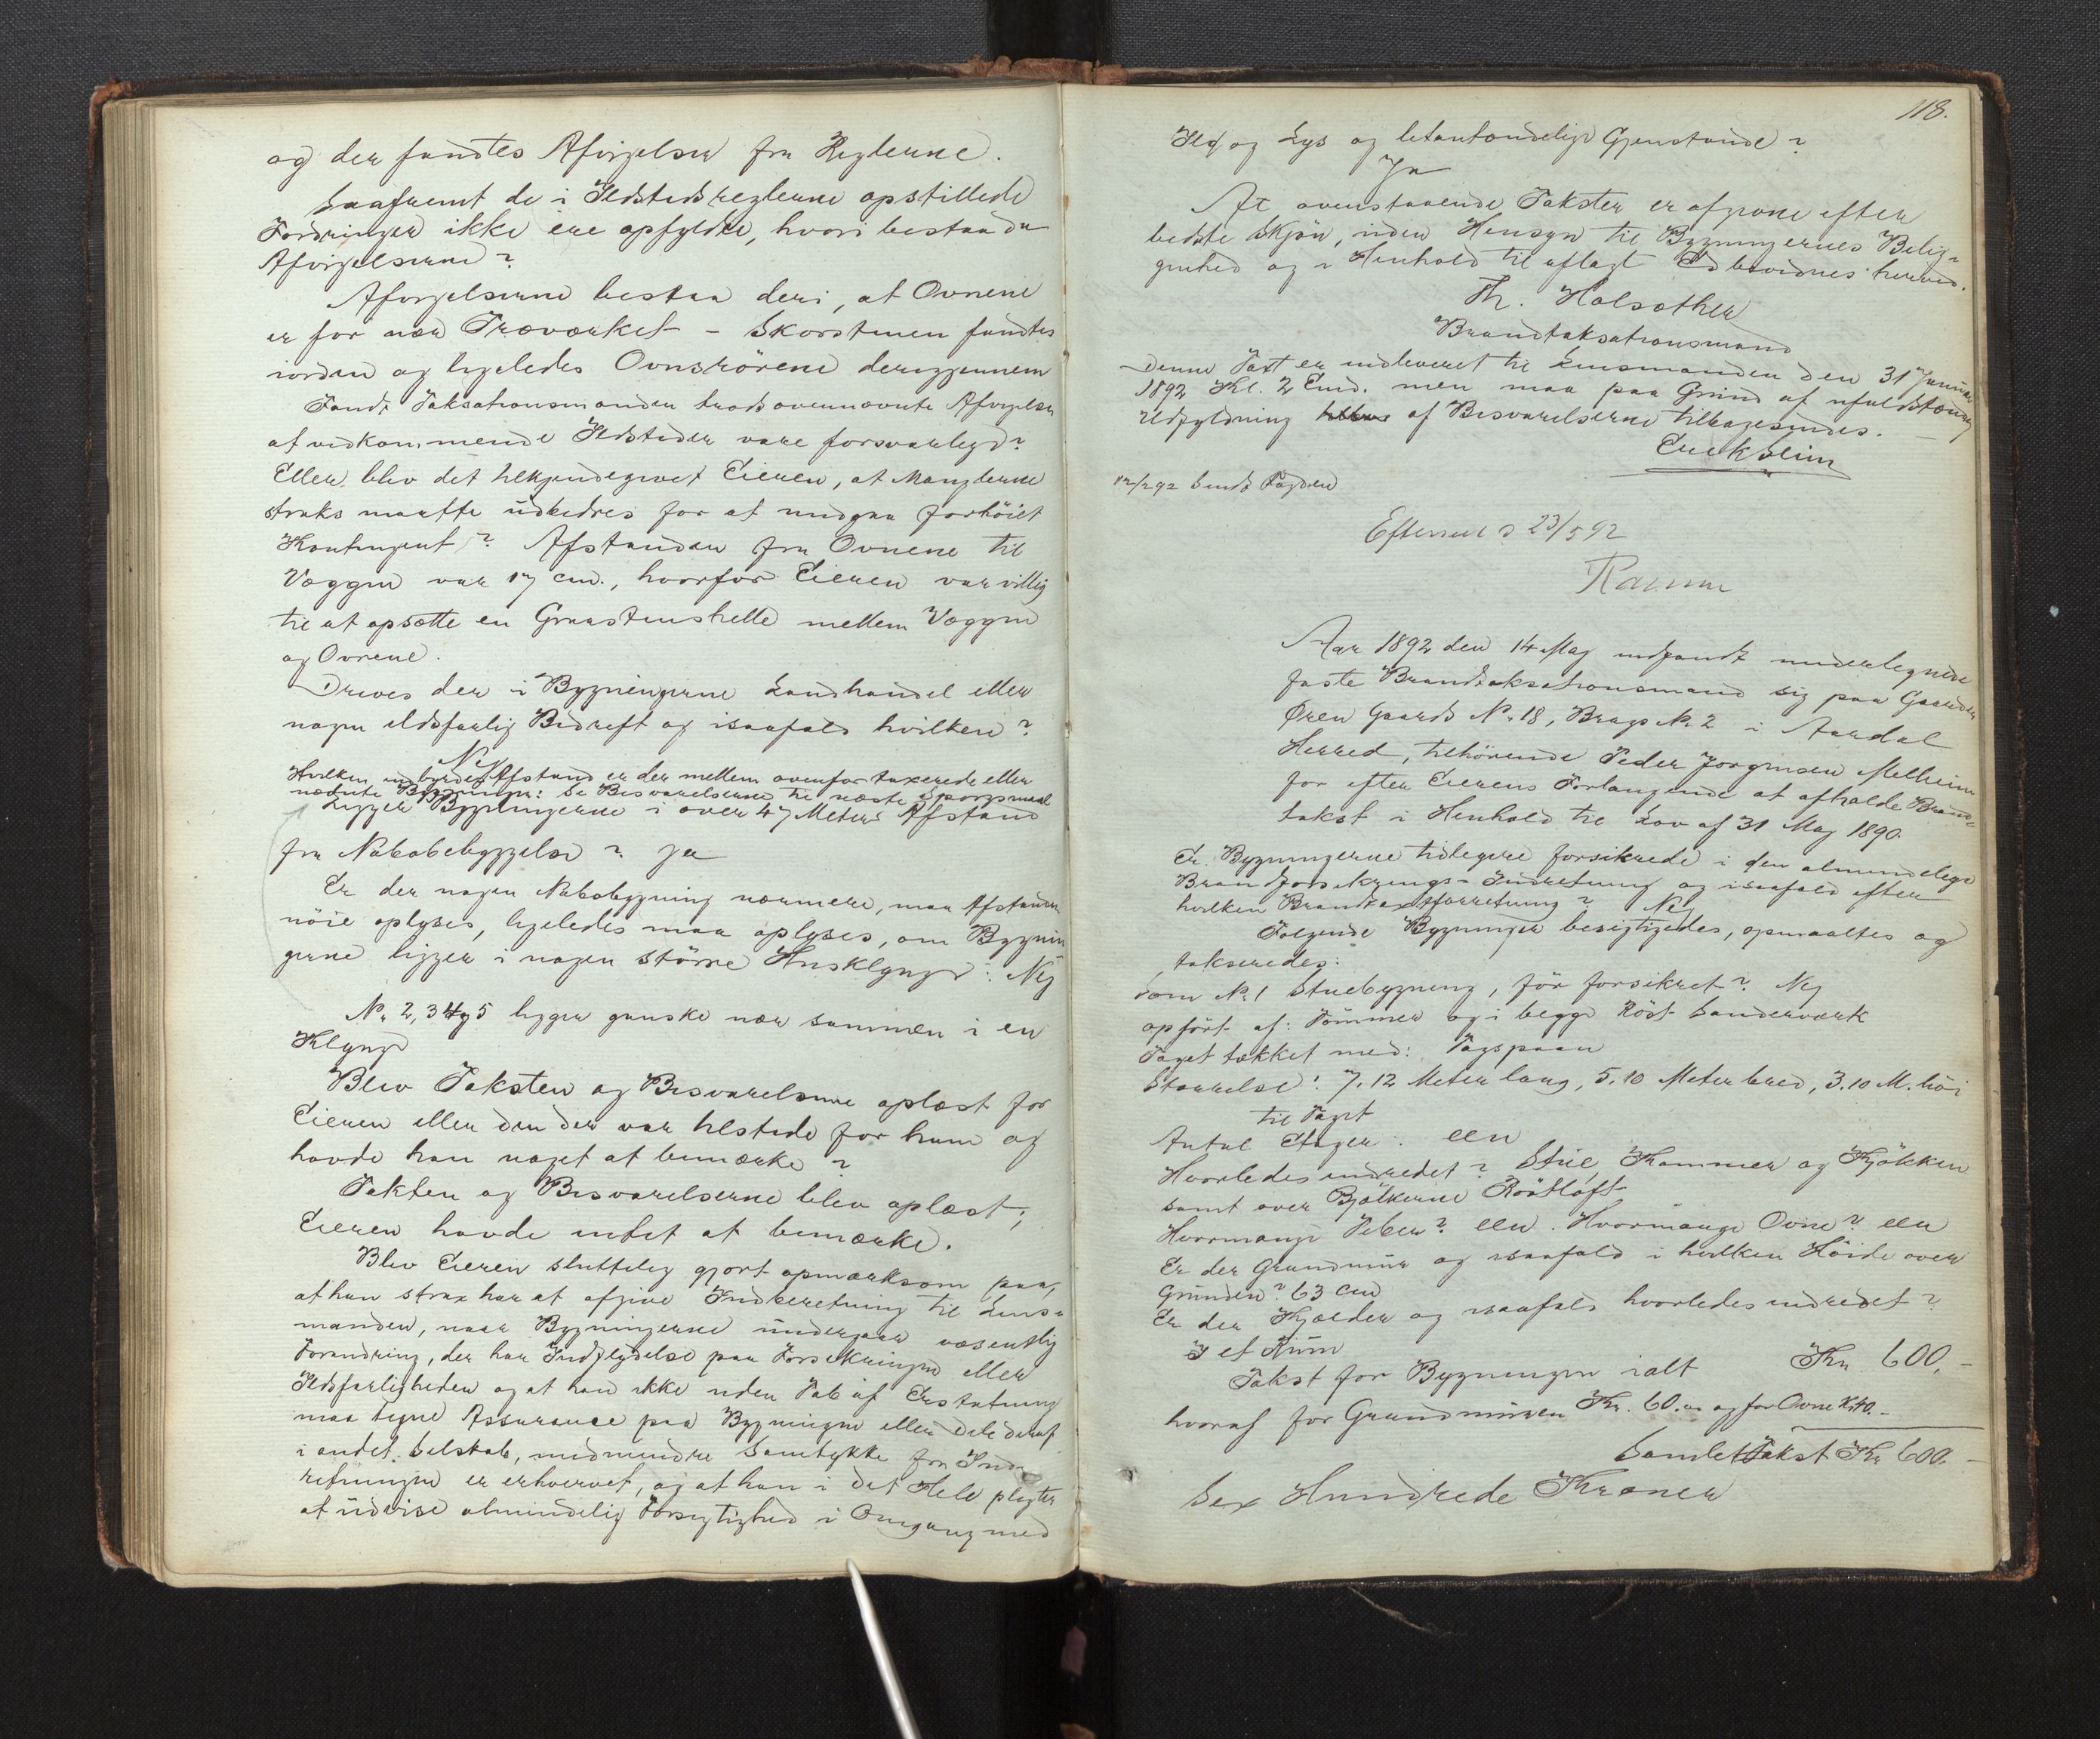 og der fandtes Afvigelser fra Reglerne.
Saafremt de i Ildstedsreglerne opstillede
Fordringer ikke ere opfyldte, hvori bestaa da
Afvigelserne?
Afvigelserne bestaa deri, at Ovnene
er for nær Træværket - Skorstenen fandtes
iorden og ligeledes Ovnsrörene derigjennem
Fandt Taksationsmanden trods ovennævnte Afvigelser
at vedkommende Ildsteder vare forsvarlige?
Eller blev det tilkjendegivet Eieren, at Manglerne
straks maatte udbedres for at undgaa forhöiet
Kontingent? Afstanden fra Ovnene til
Væggen var 17 cm., hvorfor Eieren var villig
til at opsætte en Graastenshelle mellem Væggen
og Ovnene.
Drives der i Bygningerne Landhandel eller
nogen ildsfarlig Bedreft og isaafald hvilken?
Nej
Hvilken indbyrdes Afstand er der mellem ovenfor taxerede eller
nævnte Bygninger: Se Besvarelserne til næste Spørgsmaal
Ligger Bygningerne i over 47 Meters Afstand
fra Nabobebyggelse? Ja
Er der nogen Nabobygning nærmere, maa Afstanden
nöie oplyses, ligeledes maa oplyses, om Bygnin
gerne ligger i nogen större Husklynge: Nej
No 2, 3 4 og 5 ligger ganske nær sammen i en
Klynge
Blev Taksten og Besvarelserne oplæst for
Eieren eller den der var tilstede for ham og
havde han noget at bemærke?
Taksten og Besvarelserne blev oplæst;
Eieren havde intet at bemærke.
Blev Eieren sluttelig gjort opmærksom paa,
at han strax har at afgive Indberetning til Lens=
manden, naar Bygningerne undergaar væsentlig
Forandring, der har Indflydelse paa Forsikringen eller
Ildsfarligheden og at han ikke uden Tab af Erstatning
maa tegne Assurance paa Bygningen eller Dele deraf
i andet Selskab, medmindre Samtykke fra Ind
retningen er erhvervet, og at han i det Hele pligter
at udvise almindelig Forsigtighed i Omgang med
118.
Ild og Lys og letantændelige Gjenstande?
Ja
At ovenstaaende Takster er afgivne efter
bedste Skjön, uden Hensyn til Bygningernes Belig=
genhed og i Henhold til aflagt Ed bevidnes herved.
Th. Holsæther
Brandtaksationsmand
Denne Taxt er indleveret til Lensmanden den 31 Januar
1892 Kl. 2 Emd. men maa paa Grund af ufuldstændig
Udfyldning af Besvarelserne tilbagesendes.
12/2 92 Sendt Fogden
Efterseet d 23/5 92
Aar 1892 den 14 Maj indfandt undertegnede
faste Brandtaksationsmand sig paa Gaarden
Øren Gaards No 18, Brugs No 2 i Aardal
Herred, tilhörende Peder Jørgensen Melheim
for efter Eierens Forlangende at afholde Brand=
takst i Henhold til Lov af 31 Maj 1890.
Er Bygningerne tidligere forsikrede i den almindelige
Brandforsikrings-Indretning og isaafald efter
hvilken Brandtaxtforretning? Nej
Følgende Bygninger besigtigedes, opmaaltes og
takseredes:
Som No 1 Stuebygning, för forsikret? Nej
opfört af: Tömmer og i begge Röst Sanderværk
Taget tækket med: Tagspaan
Størrelse: 7.12 Meter lang, 5.10 Meter bred, 3.10 M. höi
til Taget
Antal Etager: een
Hvorledes indredet? Stue, Kammer og Kjökken
samt over Bjälkerne Röstloft
Hvormange Piber? een. Hvormange Ovne? een
Er der Grundmur og isaafald i hvilken Höide over
Grunden? 63 cm
Er der Kjælder og isaafald hvorledes indredet?
I et Rum
Takst for Bygningen ialt Kr. 600.-
hvoraf for Grundmuren Kr. 60.- og for Ovne Kr. 40.-
Samlet Takst Kr 600.-
Sex Hundrede Kroner